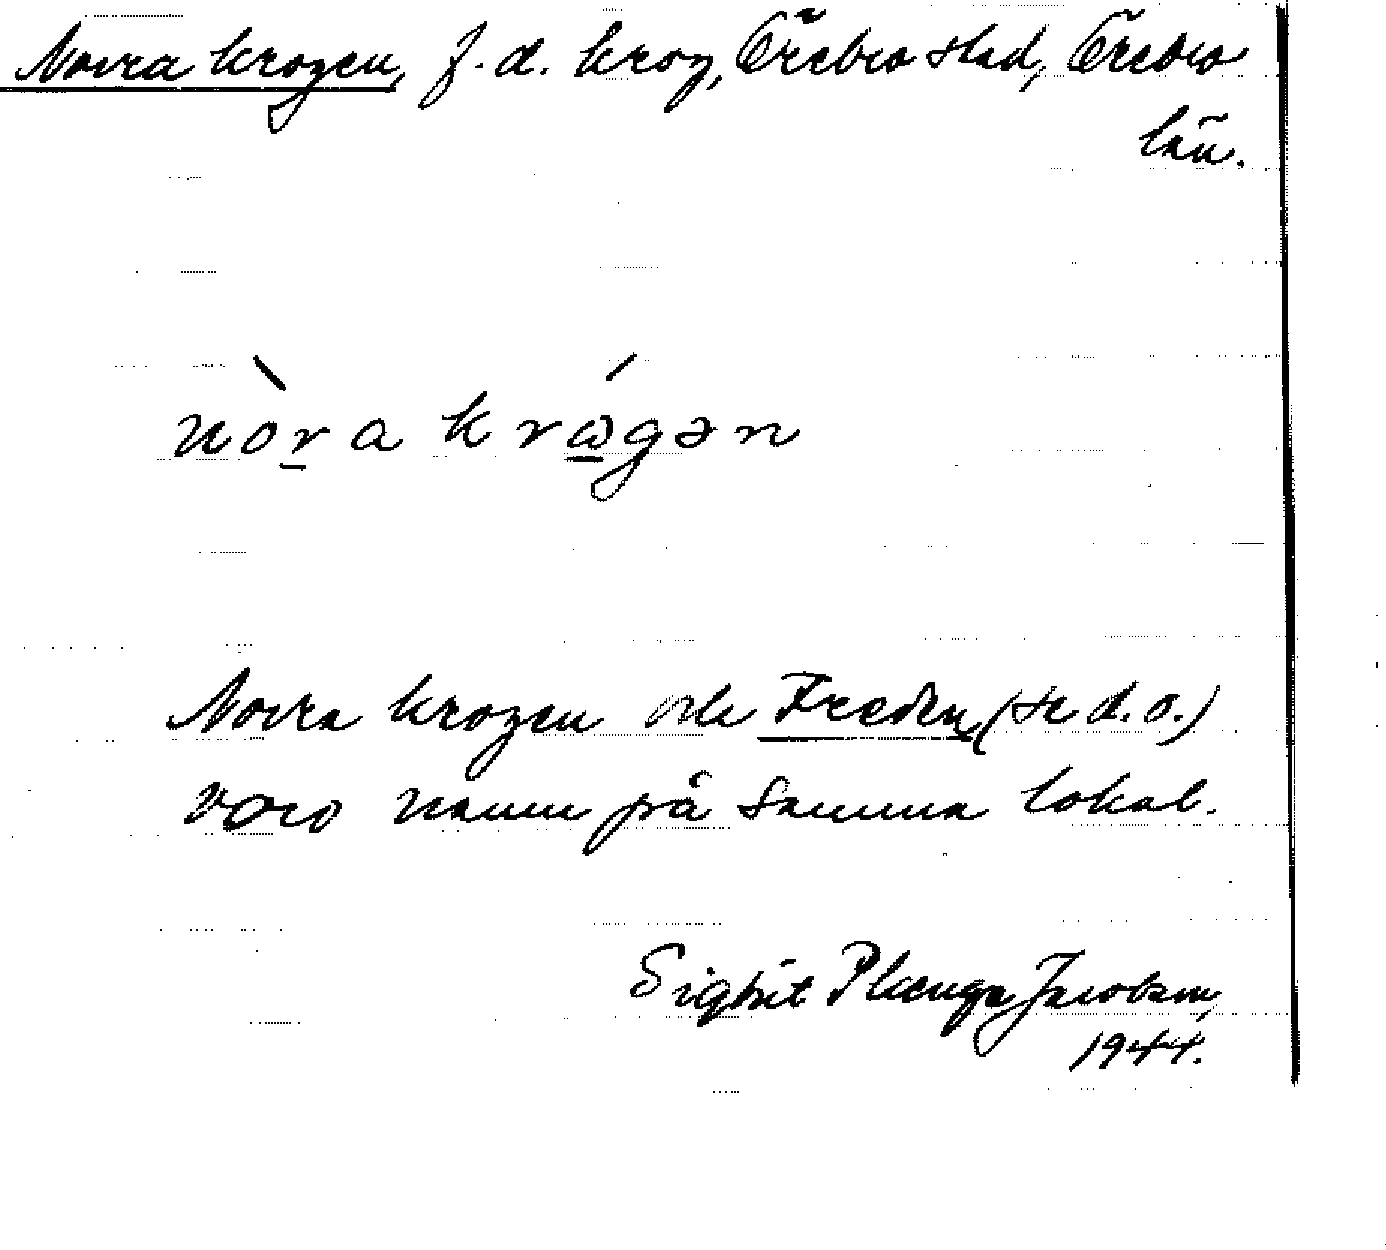 Norra krogen, f.d. krog, Örebro stad, Örebro
län.
nòra krógən
Norra krogen och Freden (se d.o.)
voro namn på samma lokal.
Sigbrit Plænge Jacobson,
1944.